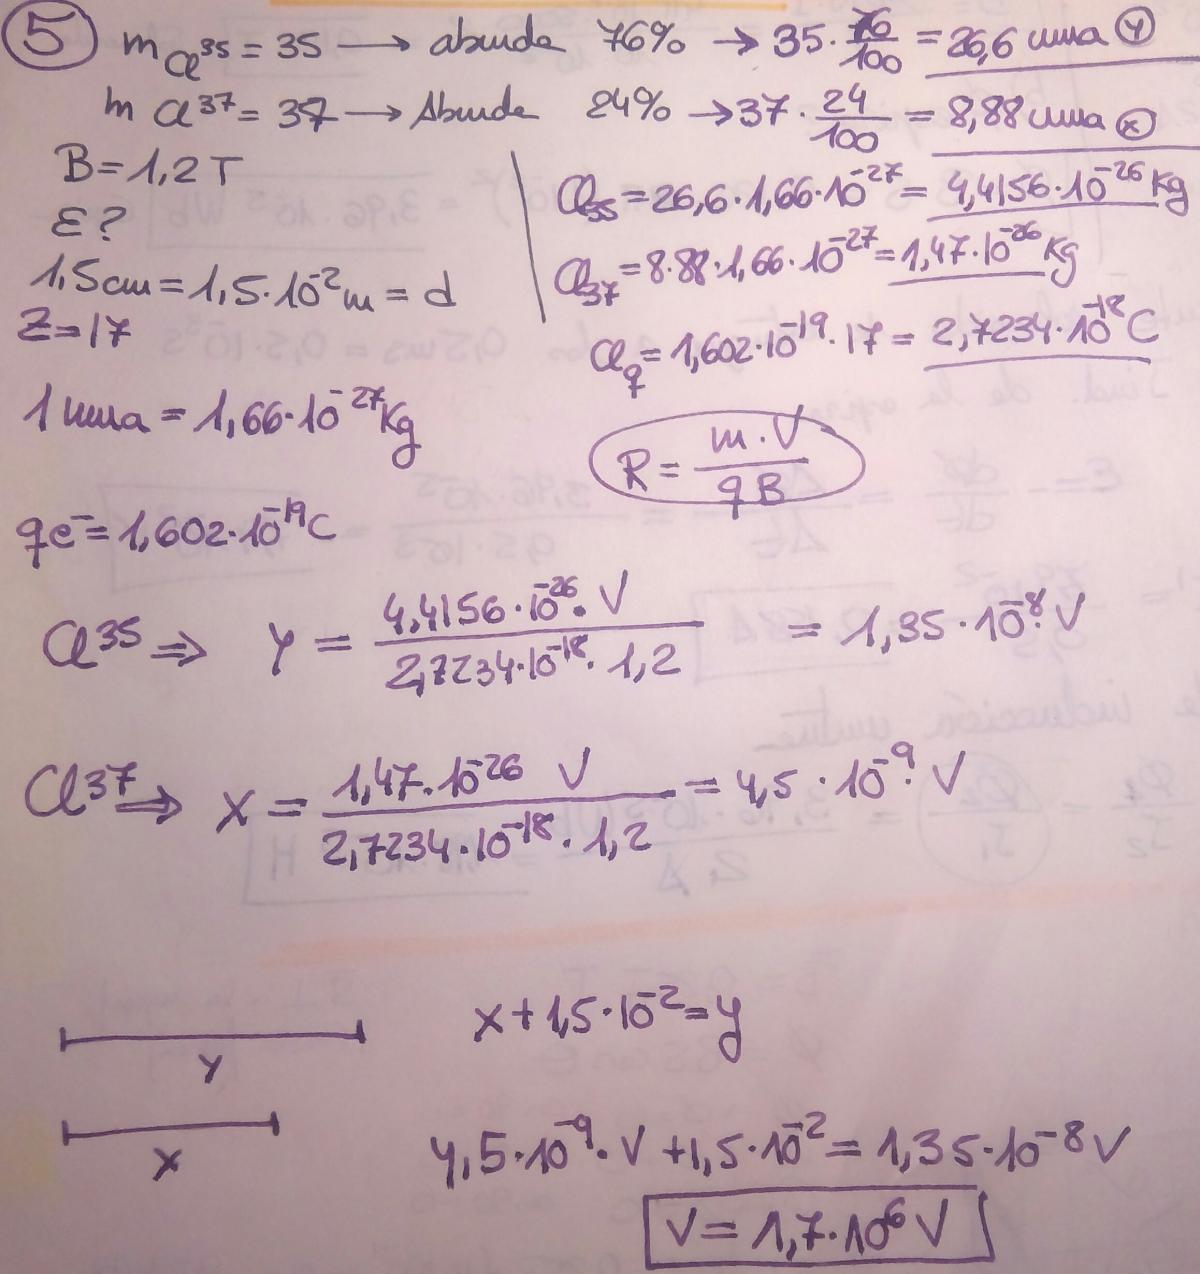 5 m Cl³⁵ = 35 → abunda 76% → 35 · 76/100 = 26,6 uma (y)
m Cl³⁷ = 37 → Abunda 24% → 37 · 24/100 = 8,88 uma (x)
B = 1,2 T
ε?
1,5cm = 1,5·10⁻² m = d
Z = 17
1 uma = 1,66·10⁻²⁷ Kg
qe⁻ = 1,602·10⁻¹⁹ C
Cl₃₅ = 26,6·1,66·10⁻²⁷ = 4,4156·10⁻²⁶ Kg
Cl₃₇ = 8.88·1,66·10⁻²⁷ = 1,47·10⁻²⁶ Kg
Cl q = 1,602·10⁻¹⁹·17 = 2,7234·10⁻¹⁸ C
R = m·V / qB
Cl³⁵ ⇒ y = 4,4156·10⁻²⁶·V / 2,7234·10⁻¹⁸·1,2 = 1,35·10⁻⁸·V
Cl³⁷ ⇒ x = 1,47·10⁻²⁶ V / 2,7234·10⁻¹⁸·1,2 = 4,5·10⁻⁹·V
y
x
x + 1,5·10⁻² = y
4,5·10⁻⁹·V + 1,5·10⁻² = 1,35·10⁻⁸ V
V = 1,7·10⁶ V